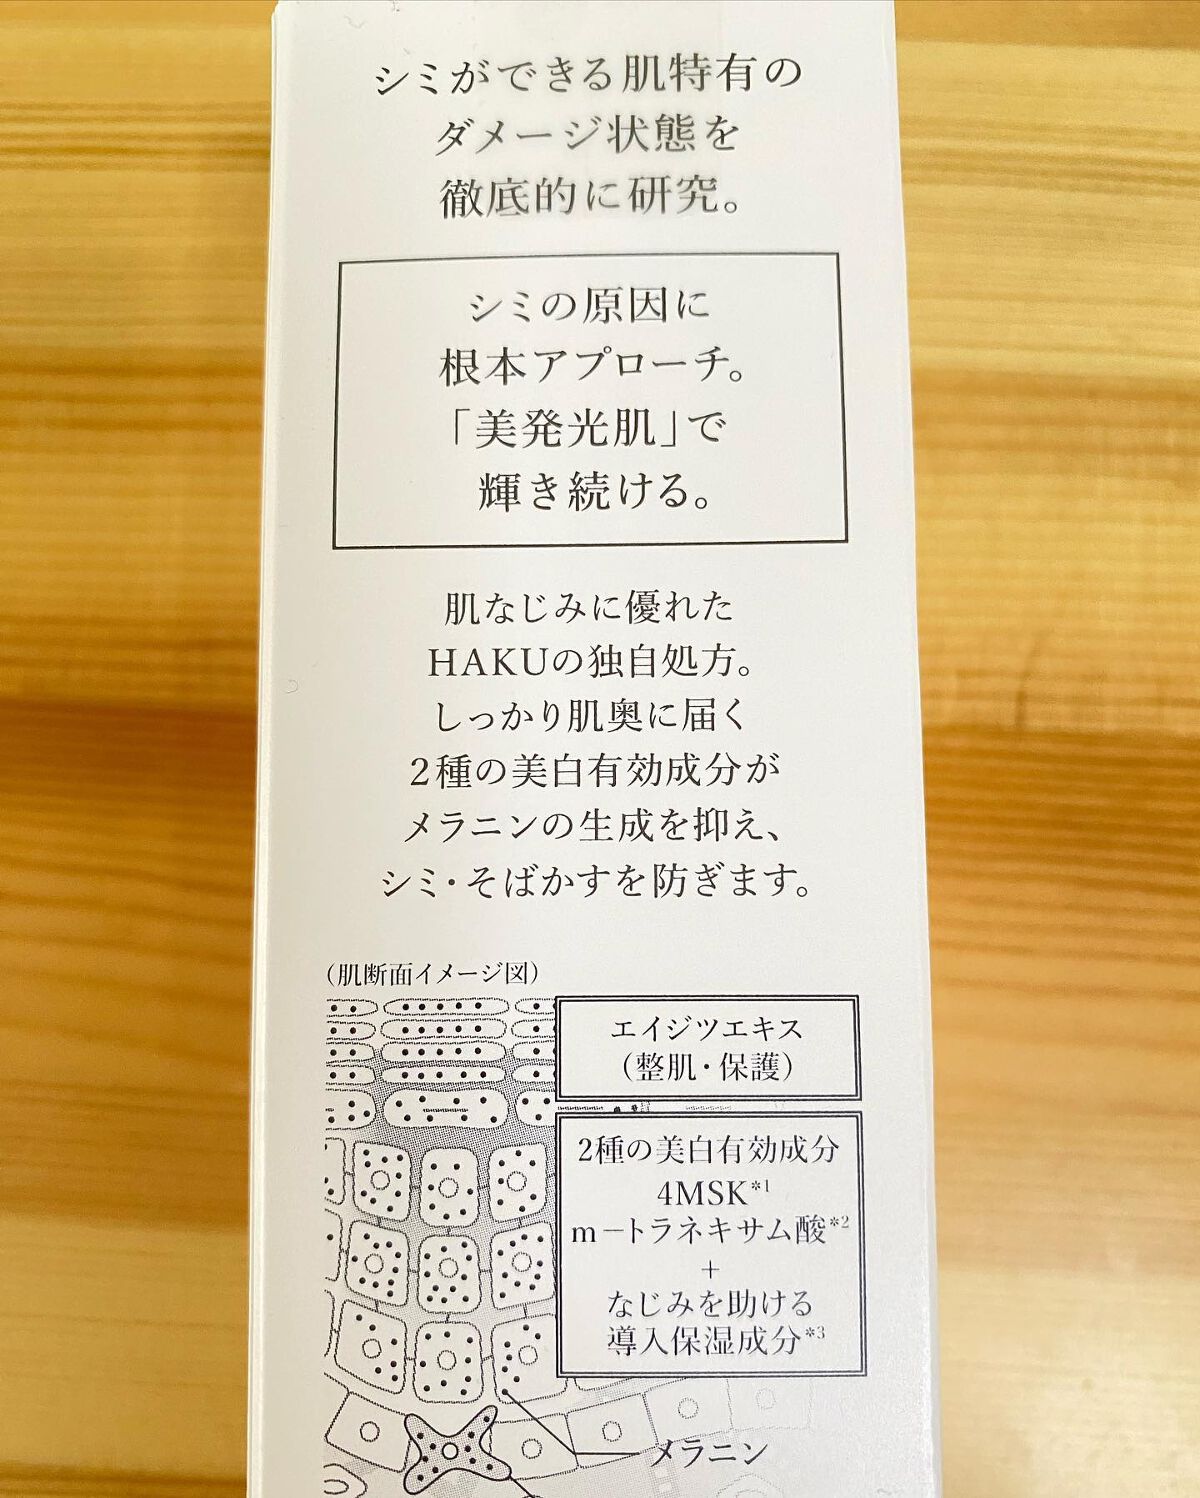 シミができる肌特有の
ダメージ状態を
徹底的に研究。
シミの原因に
根本アプローチ。
「美発光肌」で
輝き続ける。
肌なじみに優れた
HAKUの独自処方。
しっかり肌奥に届く
2種の美白有効成分が
メラニンの生成を抑え、
シミ・そばかすを防ぎます。
(肌断面イメージ図)
エイジツエキス
(整肌・保護)
2種の美白有効成分
4MSK*1
m−トラネキサム酸*2
+
なじみを助ける
導入保湿成分*3
メラニン